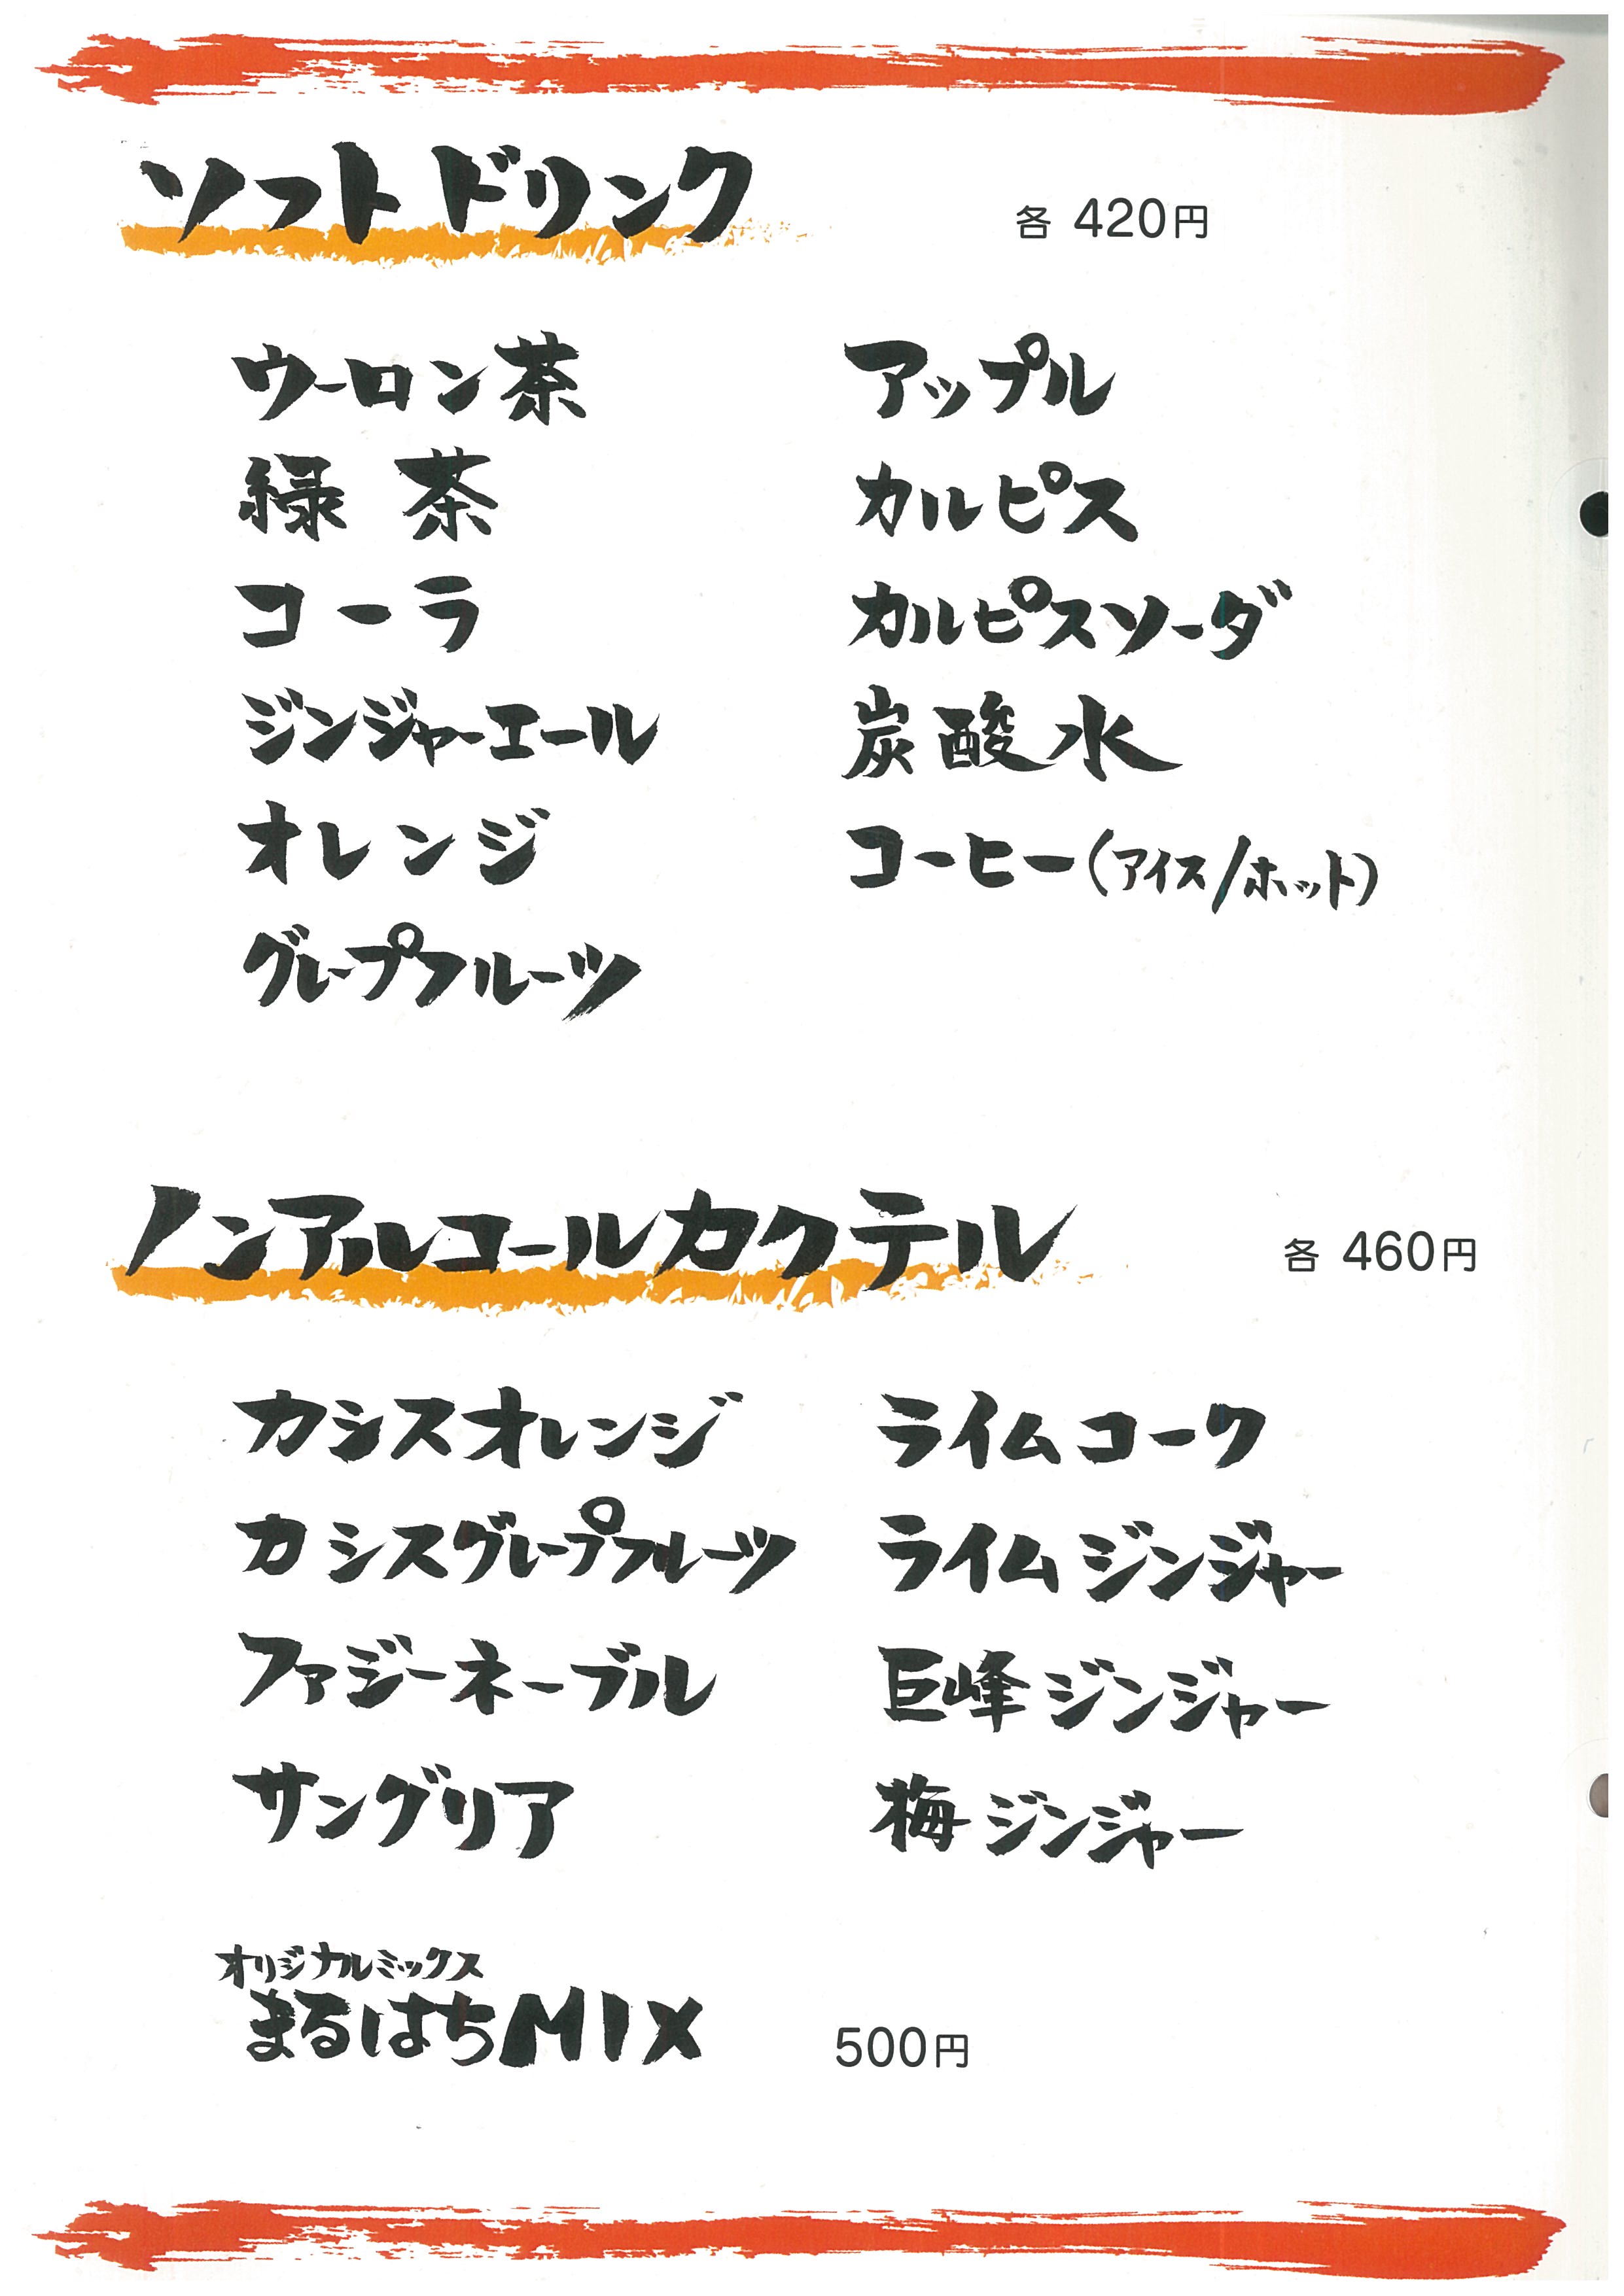 ソフトドリンク 各 420円
ウーロン茶
緑茶
コーラ
ジンジャーエール
オレンジ
グレープフルーツ
アップル
カルピス
カルピスソーダ
炭酸水
コーヒー(アイス/ホット)
ノンアルコールカクテル 各 460円
カシスオレンジ
カシスグレープフルーツ
ファジーネーブル
サングリア
ライムコーク
ライムジンジャー
巨峰ジンジャー
梅ジンジャー
オリジナルミックス
まるはちMIX 500円